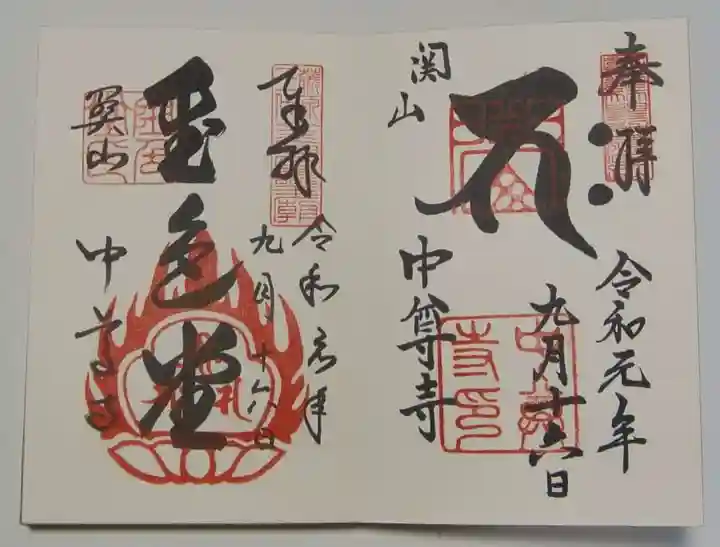 奉拝
令和元年
九月十六日
関山
中尊寺
奉拝
令和元年
九月十六日
金色堂
関山
中尊寺